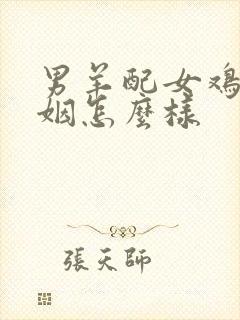 男羊配女鸡
姻怎麼样
張天師